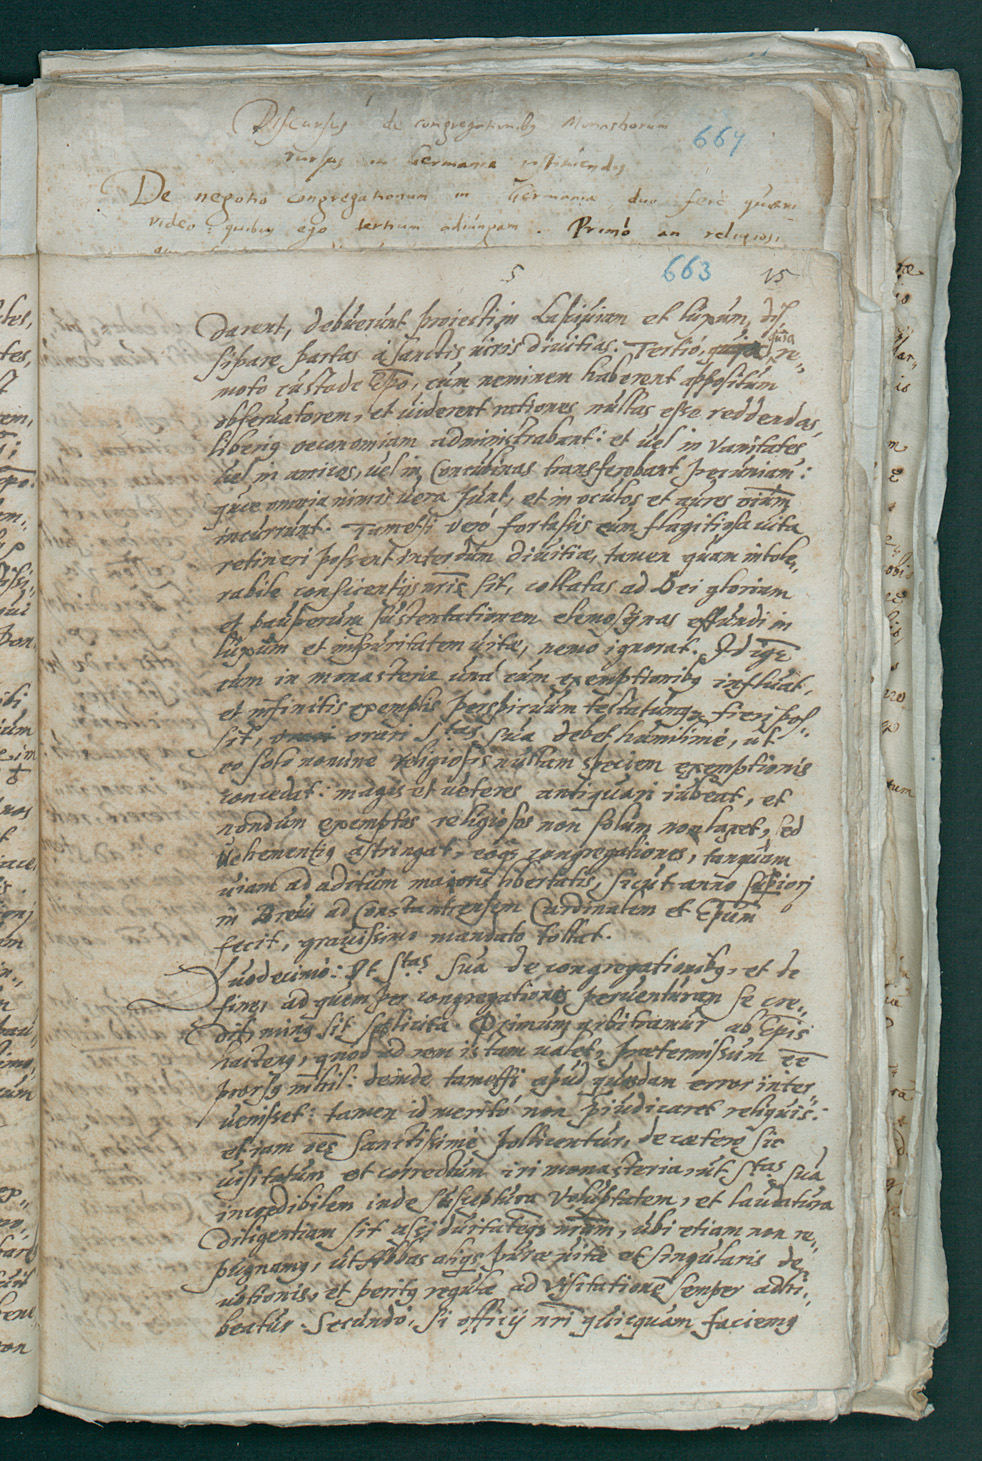 Discursus de congregationibus Monachorum
664
rursus in Germania instituendis
De negotio congregationum in Germania, duo ferè quaeri
video: quibus ego tertium adiungam. Primò an religiosi
663
5
15
darent, debuerunt proiectim Lasciuiam et luxum, dis
sipare partas à sanctis uiris diuitias. Tertiò, quia re„
moto custode Epo, cum neminem haberent appositum
obseruatorem, et uiderent rationes nullas esse reddendas,
liberius oeconomiam administrabant: et uel in vanitates
uel in amicos, uel in Concubinas transferebant pecuniam:
quae omnia nimis uera sunt, et in oculos et aures oium
incurrunt. Tametsi verò fortassis cum flagitiosa uita
retineri possent interdum diuitiae, tamen quam intole„
rabile conscientijs nris sit, collatas ad Dei gloriam
et pauperum sustentationem elemosynas effundi in
luxum et impuritatem uitae, nemo ignorat. Id igr
cum in monasteria unà cum exemptionibus influat,
et infinitis exemplis perspicuum testatumq fieri pos„
sit, orari Stas sua debet humilimè, ut
eo solo nomine religiosis nullam speciem exemptionis
concedat: magis et ueteres antiquari iubeat, et
nondum exemptos religiosos non solum non laxet, sed
uehementius astringat, eosq congregationes, tanquam
uiam ad aditum maioris libertatis, sicut anno superiorj
in Breui ad Constantiensem Cardinalem et Epum
fecit, grauissimo mandato tollat.
Duodecimò: Vt Stas sua de congregationibus, et de
fine, ad quem per congregationes peruenturam se cre„
dit, minus sit solicita. Primum arbitramur ab Epis
hactenus, quod ad rem istam ualet, praetermissum ee
prorsus nihil: deinde tametsi apud quosdam error inter„
uenisset: tamen id meritò non piudicaret reliquis:
etiam oes sanctissimè pollicentur, de caetero sic
uisitatum et correctum iri monasteria, ut Stas sua
incredibilem inde susceptura voluptatem, et laudatura
diligentiam sit assiduitatemq nram, ubi etiam non re„
pugnamus, ut Abbas aliqs purae uitae et singularis de„
uotionis, et peritus regulae ad visitationē semper adhi„
beatur. Secundò, si officij nri quicquam faciemus